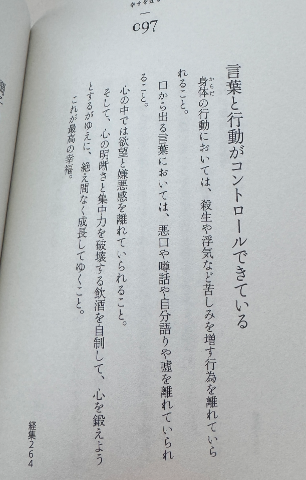 097
言葉と行動がコントロールできている
身体の行動においては、殺生や浮気など苦しみを増す行為を離れていら
れること。
口から出る言葉においては、悪口や噂話や自分語りや嘘を離れていられ
ること。
心の中では欲望と嫌悪感を離れていられること。
そして、心の明晰さと集中力を破壊する飲酒を自制して、心を鍛えよう
とするがゆえに、絶え間なく成長してゆくこと。
これが最高の幸福。
経集264